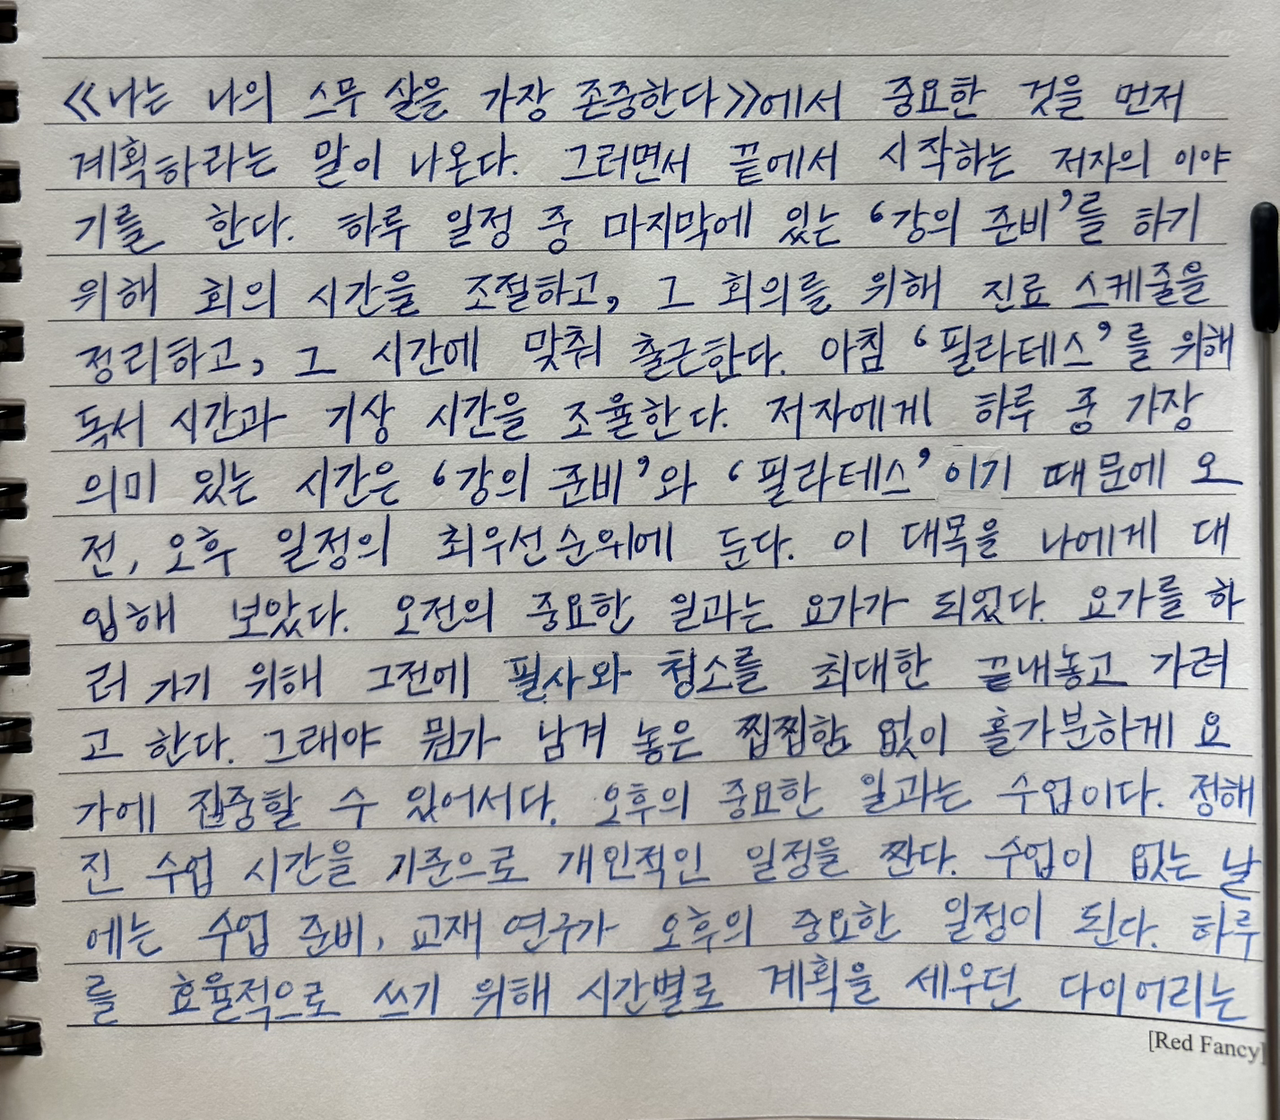 《나는 나의 스무 살을 가장 존중한다》에서 중요한 것을 먼저
계획하라는 말이 나온다. 그러면서 끝에서 시작하는 저자의 이야
기를 한다. 하루 일정 중 마지막에 있는 '강의 준비'를 하기
위해 회의 시간을 조절하고, 그 회의를 위해 진료 스케줄을
정리하고, 그 시간에 맞춰 출근한다. 아침 '필라테스'를 위해
독서 시간과 기상 시간을 조율한다. 저자에게 하루 중 가장
의미 있는 시간은 '강의 준비'와 '필라테스'이기 때문에 오
전, 오후 일정의 최우선순위에 둔다. 이 대목을 나에게 대
입해 보았다. 오전의 중요한 일과는 요가가 되었다. 요가를 하
러 가기 위해 그전에 필사와 청소를 최대한 끝내놓고 가려
고 한다. 그래야 뭔가 남겨 놓은 찝찝함 없이 홀가분하게 요
가에 집중할 수 있어서다. 오후의 중요한 일과는 수업이다. 정해
진 수업 시간을 기준으로 개인적인 일정을 짠다. 수업이 없는 날
에는 수업 준비, 교재 연구가 오후의 중요한 일정이 된다. 하루
를 효율적으로 쓰기 위해 시간별로 계획을 세우던 다이어리는
[Red Fancy]